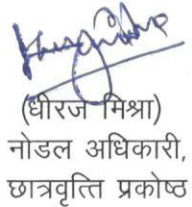 (धीरज मिश्रा)
नोडल अधिकारी,
छात्रवृत्ति प्रकोष्ठ